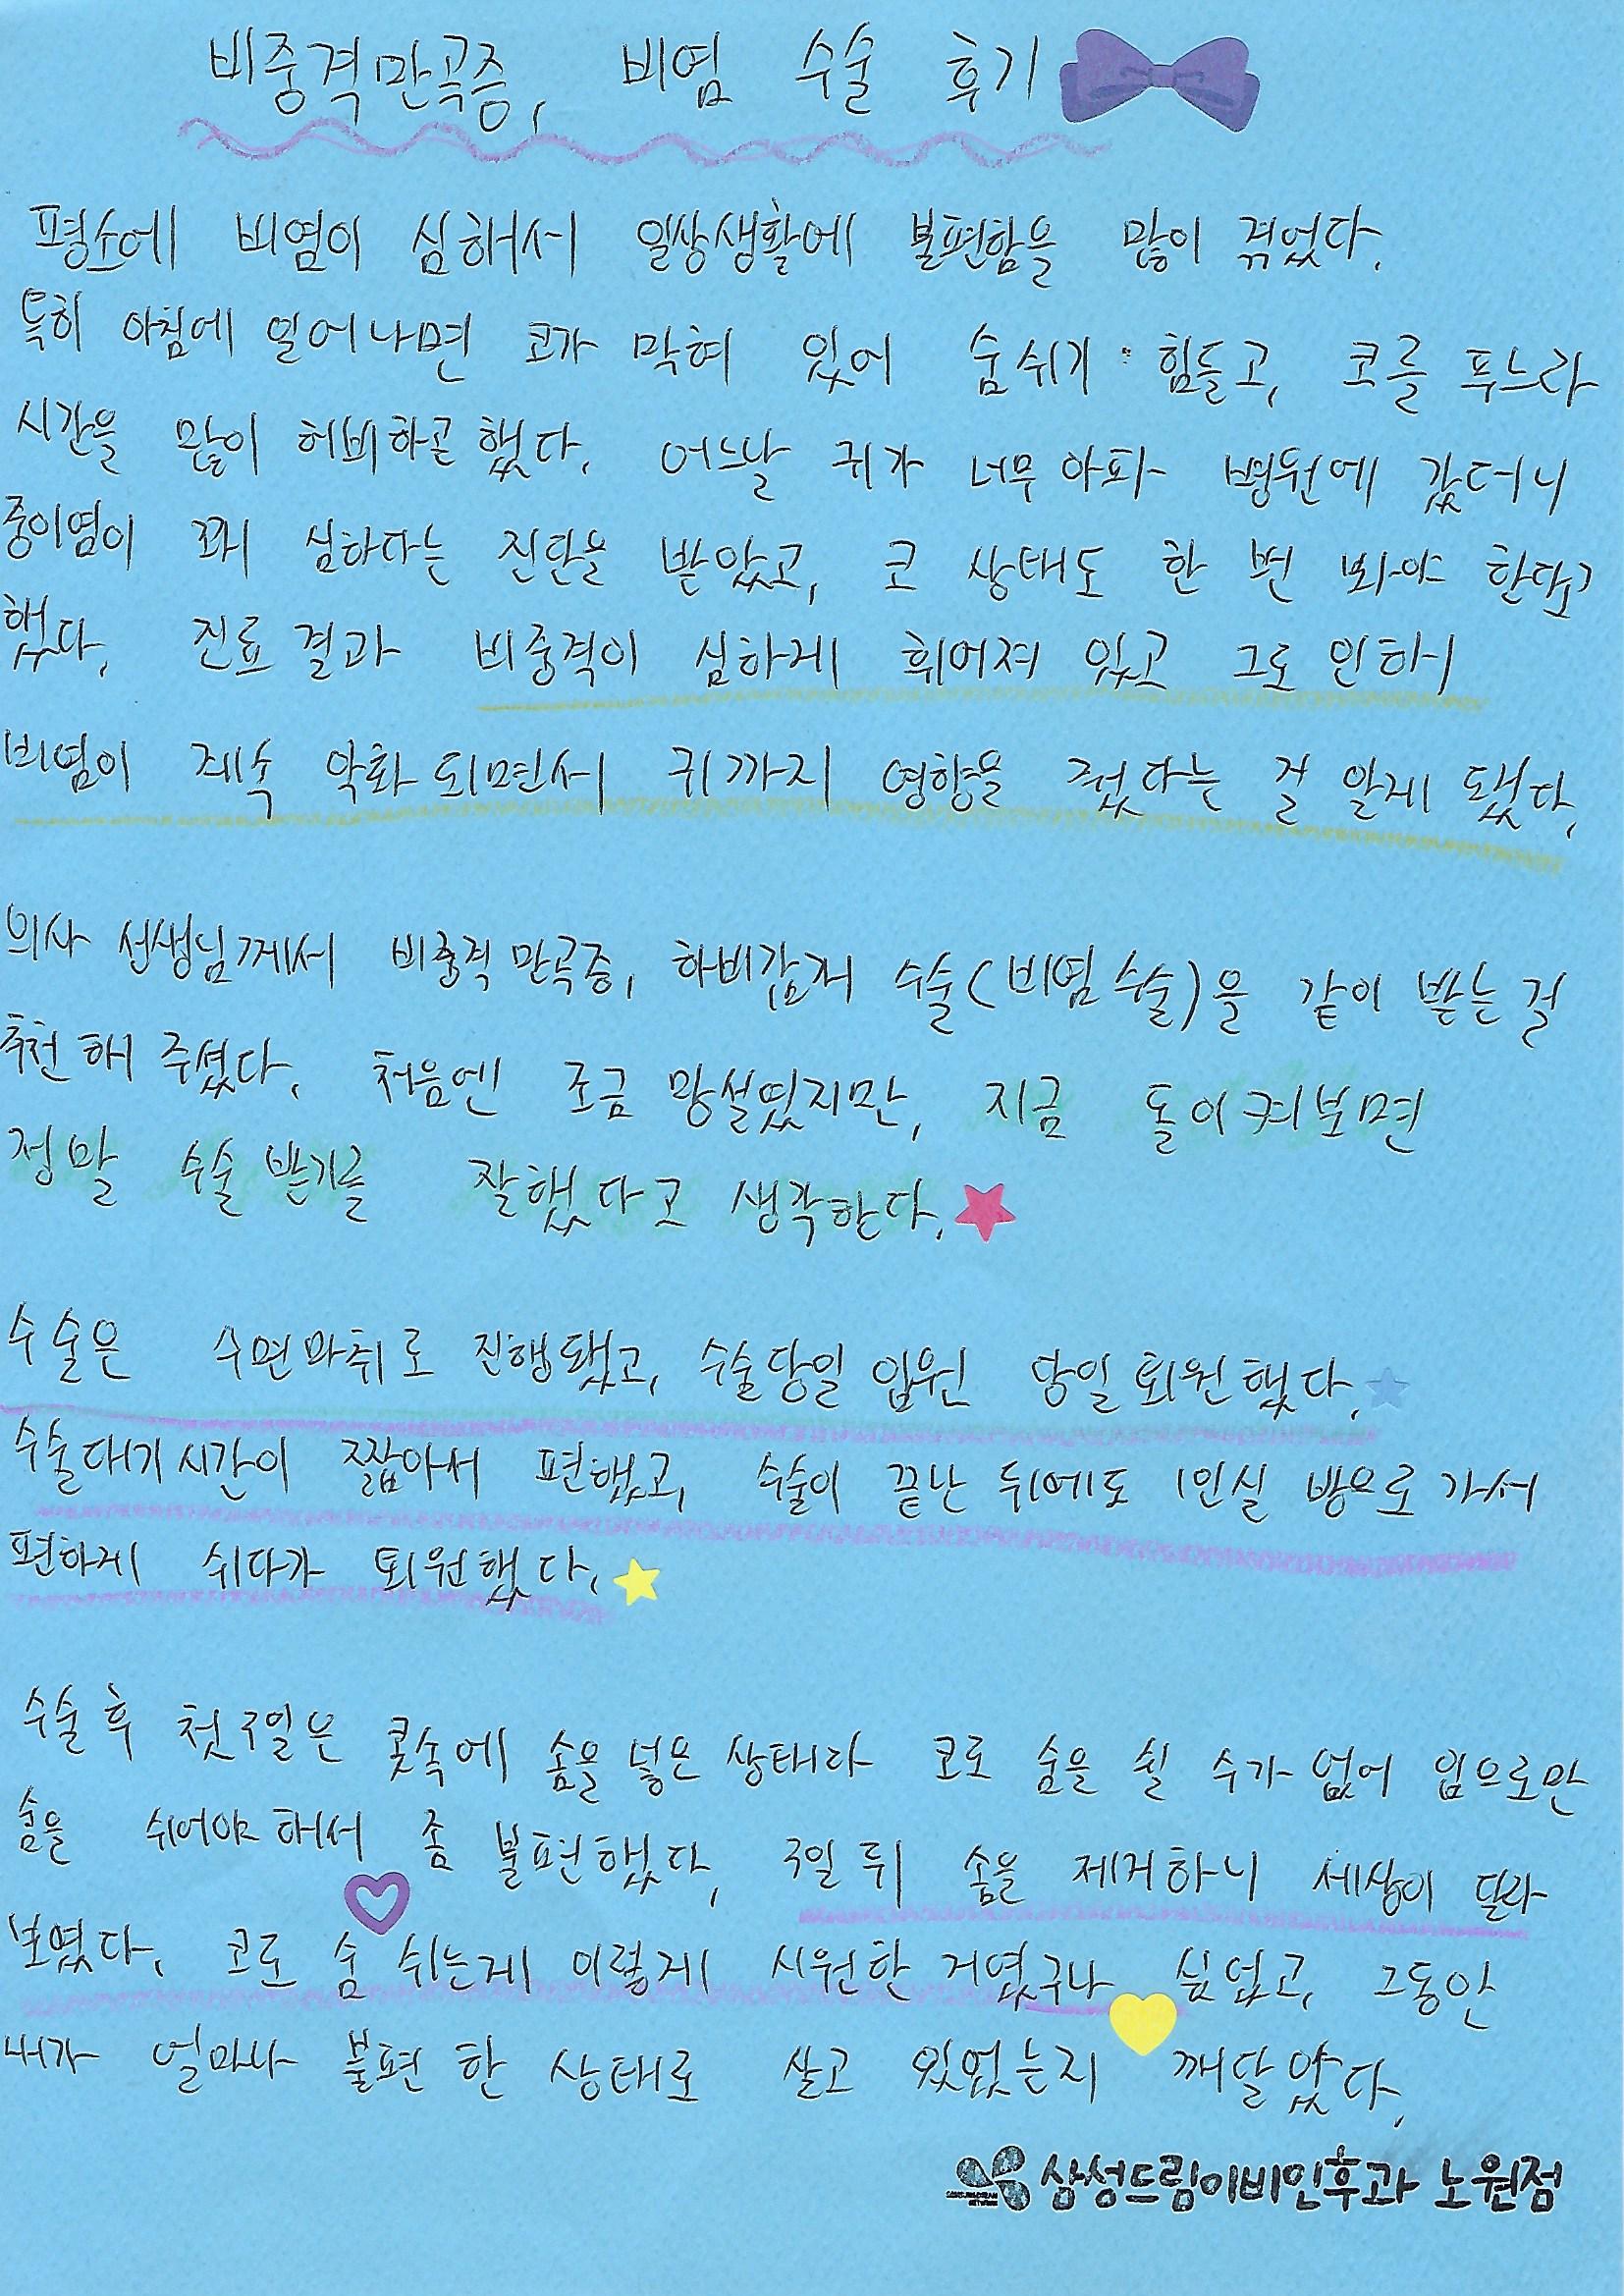 비중격만곡증, 비염 수술 후기
평소에 비염이 심해서 일상생활에 불편함을 많이 겪었다.
특히 아침에 일어나면 코가 막혀 있어 숨쉬기 힘들고, 코를 푸느라
시간을 많이 허비하곤 했다. 어느날 귀가 너무 아파 병원에 갔더니
중이염이 꽤 심하다는 진단을 받았고, 코 상태도 한 번 봐야 한다고
했다. 진료 결과 비중격이 심하게 휘어져 있고 그로 인해
비염이 계속 악화되면서 귀까지 영향을 줬다는 걸 알게 됐다.
의사 선생님께서 비중격만곡증, 하비갑개 수술(비염수술)을 같이 받는걸
추천해 주셨다. 처음엔 조금 망설였지만, 지금 돌이켜보면
정말 수술 받기를 잘했다고 생각한다.
수술은 수면마취로 진행됐고, 수술당일 입원 당일 퇴원했다.
수술대기시간이 짧아서 편했고, 수술이 끝난 뒤에도 1인실 방으로 가서
편하게 쉬다가 퇴원했다.
수술후 첫 3일은 콧속에 솜을 넣은 상태라 코로 숨을 쉴 수가 없어 입으로만
숨을 쉬어야해서 좀 불편했다, 3일 뒤 솜을 제거하니 세상이 달라
보였다. 코로 숨 쉬는게 이렇게 시원한 거였구나 싶었고, 그동안
내가 얼마나 불편한 상태로 살고 있었는지 깨달았다.
삼성드림이비인후과 노원점